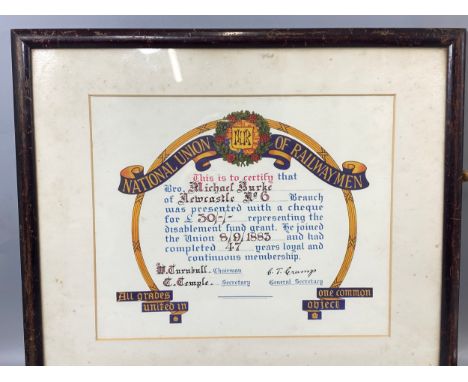 NATIONAL UNION OF RAILWAYMEN
This is to certify that
Bro. Michael Burke
of Newcastle No 6 Branch
was presented with a cheque
for £ 30/-/- representing the
disablement fund grant. He joined
the Union 8/9/1883 and had
completed 47 years loyal and
continuous membership.
W. Turnbull. Chairman
C. T. Cramp
C. Temple. Secretary
General Secretary
All grades
united in
one common
object